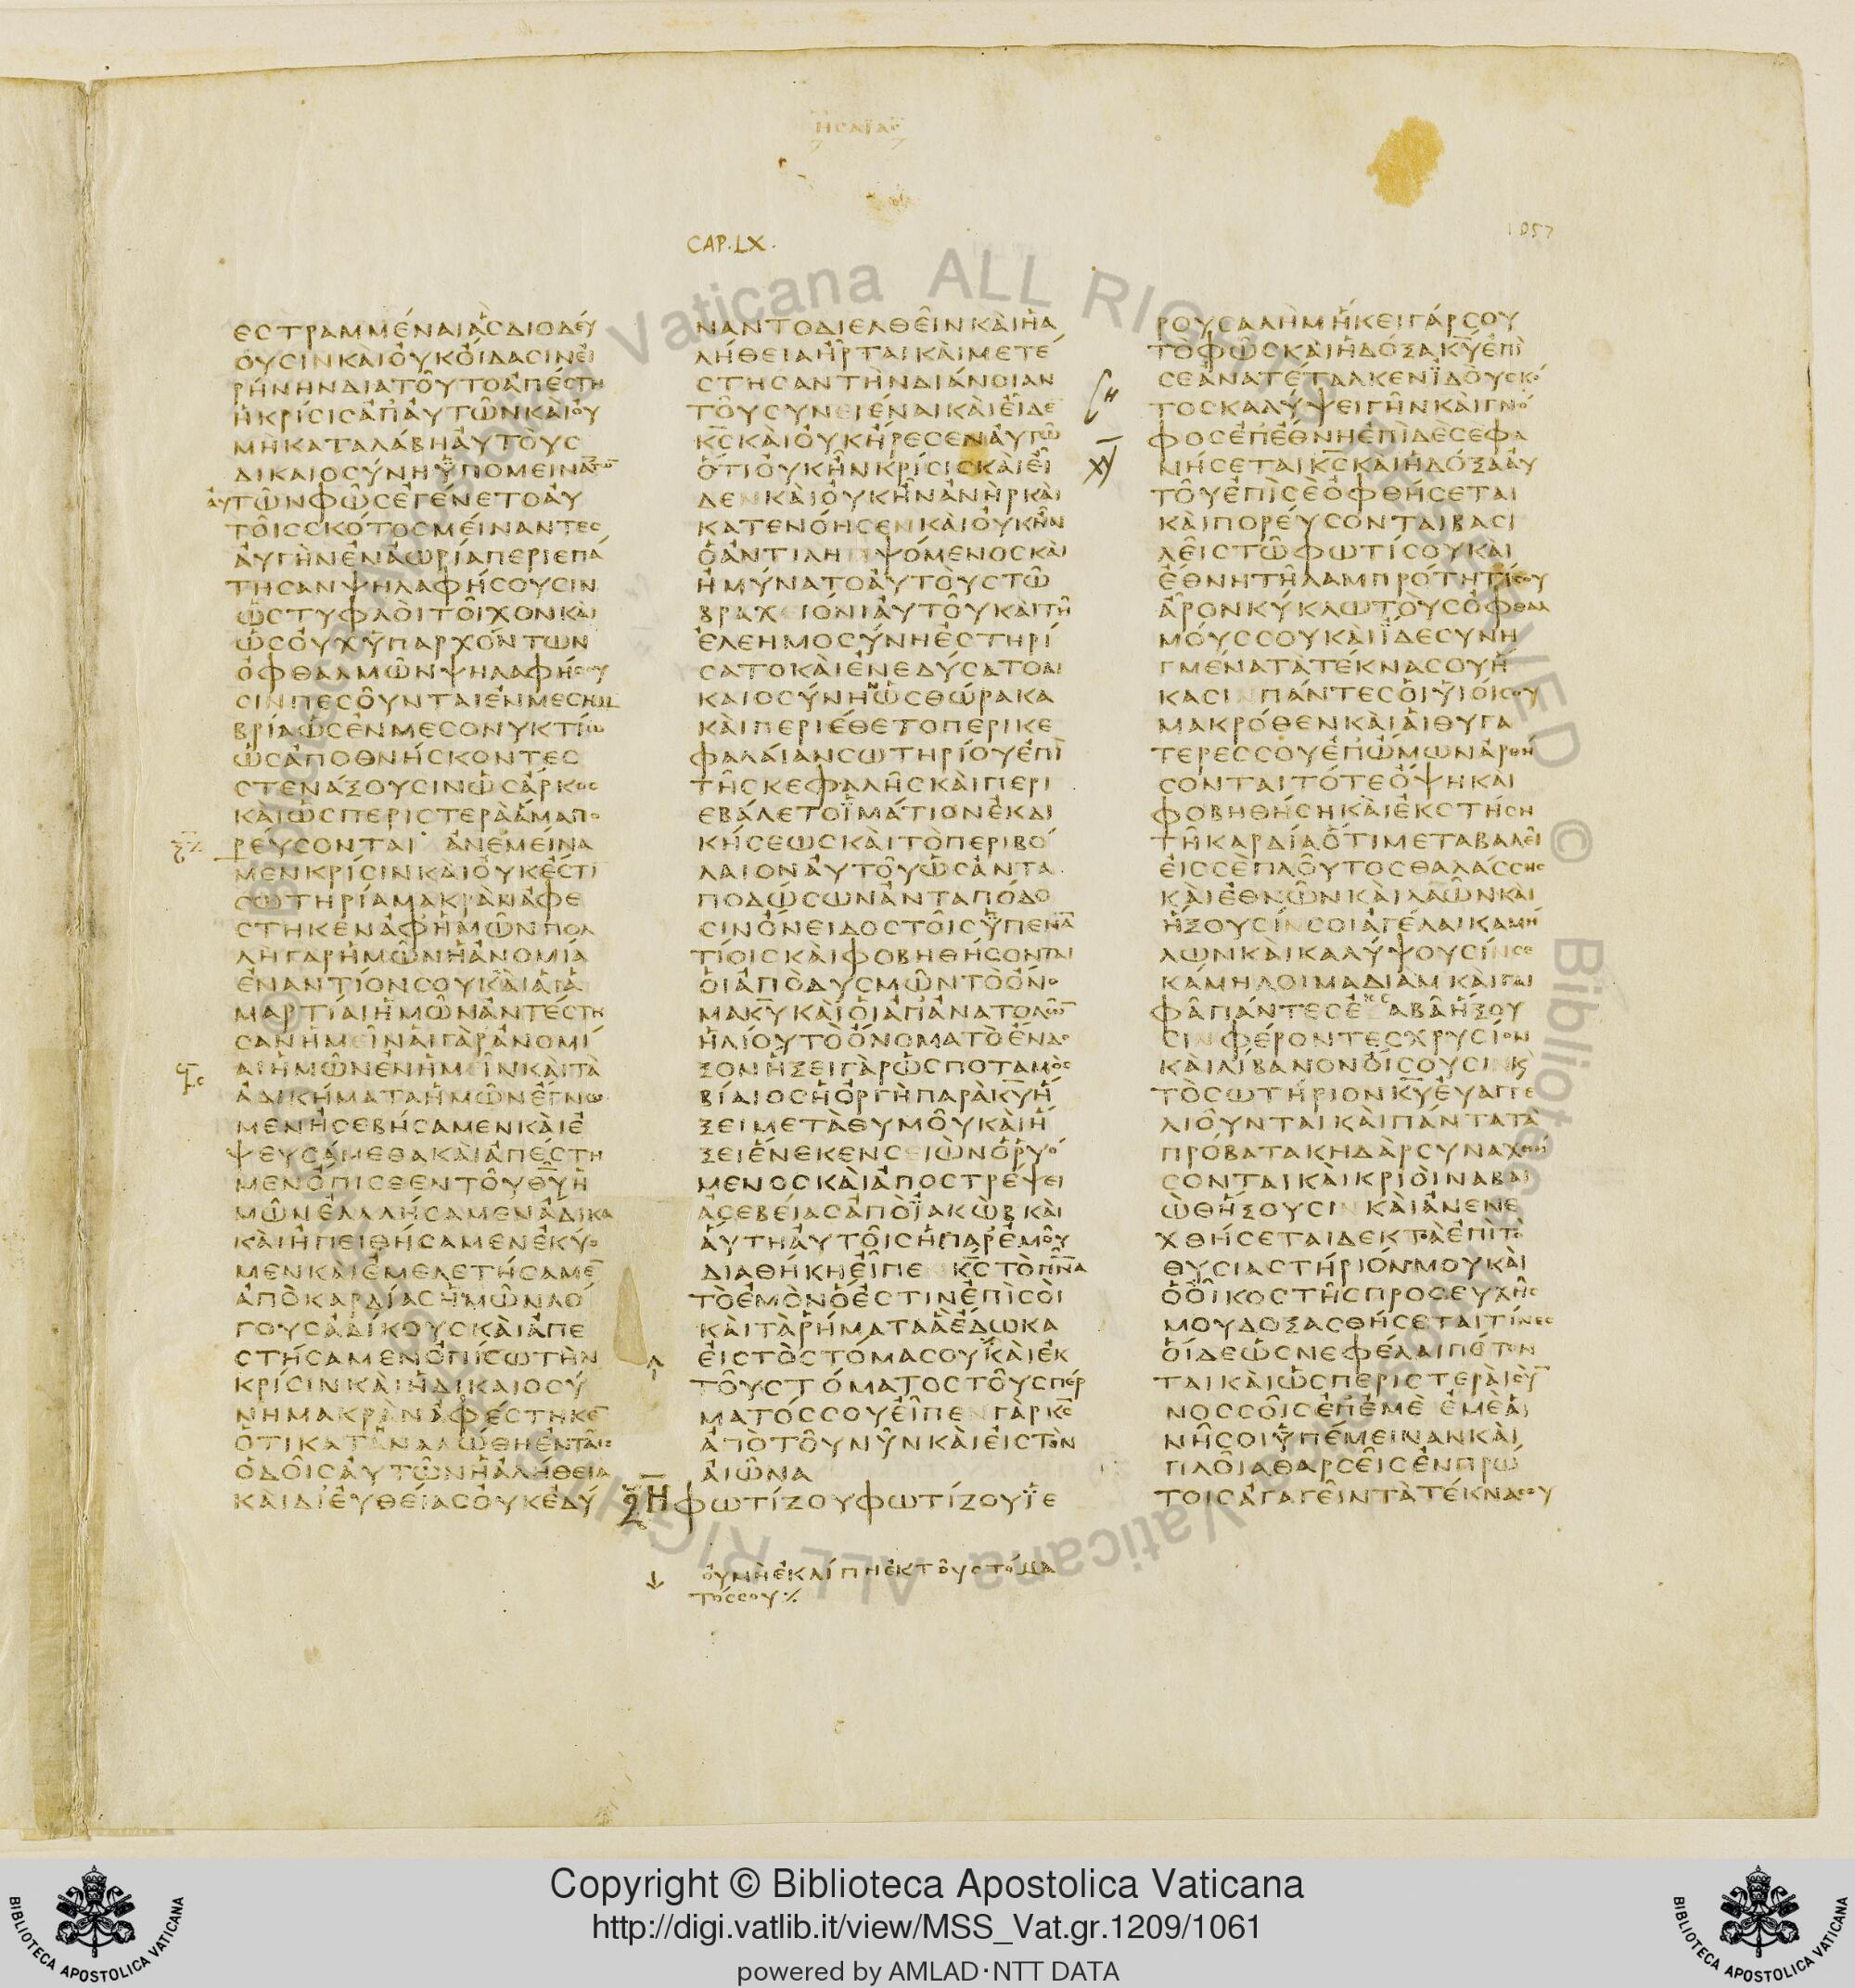 ΗΣΑΪΑΣ
CAP. LX.
1057
ΕΣΤΡΑΜΜΕΝΑΙΑΣΔΙΟΔΕΥ
ΟΥΣΙΝΚΑΙΟΥΚΟΙΔΑΣΙΝΕΙ
ΡΗΝΗΝΔΙΑΤΟΥΤΟΑΠΕΣΤΗ
ΗΚΡΙΣΙΣΑΠΑΥΤΩΝΚΑΙΟΥ
ΜΗΚΑΤΑΛΑΒΗΑΥΤΟΥΣ
ΔΙΚΑΙΟΣΥΝΗΫΠΟΜΕΙΝΑΤΩ̅
ΑΥΤΩΝΦΩΣΕΓΕΝΕΤΟΑΥ
ΤΟΙΣΣΚΟΤΟΣΜΕΙΝΑΝΤΕΣ
ΑΥΓΗΝΕΝΑΩΡΙΑΠΕΡΙΕΠΑ
ΤΗΣΑΝΨΗΛΑΦΗΣΟΥΣΙΝ
ΩΣΤΥΦΛΟΙΤΟΙΧΟΝΚΑΙ
ΩΣΟΥΧΫΠΑΡΧΟΝΤΩΝ
ΟΦΘΑΛΜΩΝΨΗΛΑΦΗΣΟΥ
ΣΙΝΠΕΣΟΥΝΤΑΙΕΝΜΕΣΗΜ
ΒΡΙΑΩΣΕΝΜΕΣΟΝΥΚΤΙΩ
ΩΣΑΠΟΘΝΗΣΚΟΝΤΕΣ
ΣΤΕΝΑΞΟΥΣΙΝΩΣΑΡΚΟΣ
ΚΑΙΩΣΠΕΡΙΣΤΕΡΑΑΜΑΠΟ
ΡΕΥΣΟΝΤΑΙ ΑΝΕΜΕΙΝΑ
ΜΕΝΚΡΙΣΙΝΚΑΙΟΥΚΕΣΤΙ
ΣΩΤΗΡΙΑΜΑΚΡΑΝΑΦΕ
ΣΤΗΚΕΝΑΦΗΜΩΝΠΟΛ
ΛΗΓΑΡΗΜΩΝΗΑΝΟΜΙΑ
ΕΝΑΝΤΙΟΝΣΟΥΚΑΙΑΙΑ
ΜΑΡΤΙΑΙΗΜΩΝΑΝΤΕΣΤΗ
ΣΑΝΗΜΕΙΝΑΙΓΑΡΑΝΟΜΙ
ΑΙΗΜΩΝΕΝΗΜΕΙΝΚΑΙΤΑ
ΑΔΙΚΗΜΑΤΑΗΜΩΝΕΓΝΩ
ΜΕΝΗΣΕΒΗΣΑΜΕΝΚΑΙΕ
ΨΕΥΣΑΜΕΘΑΚΑΙΑΠΕΣΤΗ
ΜΕΝΟΠΙΣΘΕΝΤΟΥΘ̅Υ̅Η
ΜΩΝΕΛΑΛΗΣΑΜΕΝΑΔΙΚΑ
ΚΑΙΗΠΕΙΘΗΣΑΜΕΝΕΚΥΟ
ΜΕΝΚΑΙΕΜΕΛΕΤΗΣΑΜΕ̅
ΑΠΟΚΑΡΔΙΑΣΗΜΩΝΛΟ
ΓΟΥΣΑΔΙΚΟΥΣΚΑΙΑΠΕ
ΣΤΗΣΑΜΕΝΟΠΙΣΩΤΗΝ
ΚΡΙΣΙΝΚΑΙΗΔΙΚΑΙΟΣΥ
ΝΗΜΑΚΡΑΝΑΦΕΣΤΗΚΕ̅
ΟΤΙΚΑΤΑΝΑΛΩΘΗΕΝΤΑΙΣ
ΟΔΟΙΣΑΥΤΩΝΗΑΛΗΘΕΙΑ
ΚΑΙΔΙΕΥΘΕΙΑΣΟΥΚΕΔΥ
ΝΑΝΤΟΔΙΕΛΘΕΙΝΚΑΙΗΑ
ΛΗΘΕΙΑΗΡΤΑΙΚΑΙΜΕΤΕ
ΣΤΗΣΑΝΤΗΝΔΙΑΝΟΙΑΝ
ΤΟΥΣΥΝΕΙΕΝΑΙΚΑΙΕΙΔΕ
Κ̅Σ̅ΚΑΙΟΥΚΗΡΕΣΕΝΑΥΤΩ
ΟΤΙΟΥΚΗΝΚΡΙΣΙΣΚΑΙΕΙ
ΔΕΝΚΑΙΟΥΚΗΝΑΝΗΡΚΑΙ
ΚΑΤΕΝΟΗΣΕΝΚΑΙΟΥΚΗΝ
ΟΑΝΤΙΛΗΜΨΟΜΕΝΟΣΚΑΙ
ΗΜΥΝΑΤΟΑΥΤΟΥΣΤΩ
ΒΡΑΧΕΙΟΝΙΑΥΤΟΥΚΑΙΤΗ
ΕΛΕΗΜΟΣΥΝΗΕΣΤΗΡΙ
ΣΑΤΟΚΑΙΕΝΕΔΥΣΑΤΟΔΙ
ΚΑΙΟΣΥΝΗΝΩΣΘΩΡΑΚΑ
ΚΑΙΠΕΡΙΕΘΕΤΟΠΕΡΙΚΕ
ΦΑΛΑΙΑΝΣΩΤΗΡΙΟΥΕΠΙ
ΤΗΣΚΕΦΑΛΗΣΚΑΙΠΕΡΙ
ΕΒΑΛΕΤΟΪΜΑΤΙΟΝΕΚΔΙ
ΚΗΣΕΩΣΚΑΙΤΟΠΕΡΙΒΟ
ΛΑΙΟΝΑΥΤΟΥΩΣΑΝΤΑ
ΠΟΔΩΣΩΝΑΝΤΑΠΟΔΟ
ΣΙΝΟΝΕΙΔΟΣΤΟΙΣΫΠΕΝΑ̅
ΤΙΟΙΣΚΑΙΦΟΒΗΘΗΣΟΝΤΑΙ
ΟΙΑΠΟΔΥΣΜΩΝΤΟΟΝΟ
ΜΑΚ̅Υ̅ΚΑΙΟΙΑΠΑΝΑΤΟΛΩ̅
ΗΛΙΟΥΤΟΟΝΟΜΑΤΟΕΝΔΟ
ΞΟΝΗΞΕΙΓΑΡΩΣΠΟΤΑΜΟΣ
ΒΙΑΙΟΣΗΟΡΓΗΠΑΡΑΚ̅Υ̅Η
ΞΕΙΜΕΤΑΘΥΜΟΥΚΑΙΗ
ΞΕΙΕΝΕΚΕΝΣΕΙΩΝΟΡΥΟ
ΜΕΝΟΣΚΑΙΑΠΟΣΤΡΕΨΕΙ
ΑΣΕΒΕΙΑΣΑΠΟΪΑΚΩΒΚΑΙ
ΑΥΤΗΑΥΤΟΙΣΗΠΑΡΕΜΟΥ
ΔΙΑΘΗΚΗΕΙΠΕΝΚ̅Σ̅ΤΟΠ̅Ν̅Α̅
ΤΟΕΜΟΝΟΕΣΤΙΝΕΠΙΣΟΙ
ΚΑΙΤΑΡΗΜΑΤΑΑΕΔΩΚΑ
ΕΙΣΤΟΣΤΟΜΑΣΟΥΚΑΙΕΚ
ΤΟΥΣΤΟΜΑΤΟΣΤΟΥΣΠΕΡ
ΜΑΤΟΣΣΟΥΕΙΠΕΝΓΑΡΚ̅Σ̅
ΑΠΟΤΟΥΝΥΝΚΑΙΕΙΣΤΟΝ
ΑΙΩΝΑ
ΦΩΤΙΖΟΥΦΩΤΙΖΟΥΪΕ
ΟΥΜΗΕΚΛΙΠΗΕΚΤΟΥΣΤΟΜΑ
ΤΟΣΣΟΥ
ΡΟΥΣΑΛΗΜΗΚΕΙΓΑΡΣΟΥ
ΤΟΦΩΣΚΑΙΗΔΟΞΑΚ̅Υ̅ΕΠΙ
ΣΕΑΝΑΤΕΤΑΛΚΕΝΪΔΟΥΣΚΟ
ΤΟΣΚΑΛΥΨΕΙΓΗΝΚΑΙΓΝΟ
ΦΟΣΕΠΕΘΝΗΕΠΙΔΕΣΕΦΑ
ΝΗΣΕΤΑΙΚ̅Σ̅ΚΑΙΗΔΟΞΑΑΥ
ΤΟΥΕΠΙΣΕΟΦΘΗΣΕΤΑΙ
ΚΑΙΠΟΡΕΥΣΟΝΤΑΙΒΑΣΙ
ΛΕΙΣΤΩΦΩΤΙΣΟΥΚΑΙ
ΕΘΝΗΤΗΛΑΜΠΡΟΤΗΤΙΣΟΥ
ΑΡΟΝΚΥΚΛΩΤΟΥΣΟΦΘΑΛ
ΜΟΥΣΣΟΥΚΑΙΪΔΕΣΥΝΗ
ΓΜΕΝΑΤΑΤΕΚΝΑΣΟΥΗ
ΚΑΣΙΝΠΑΝΤΕΣΟΙΫΙΟΙΣΟΥ
ΜΑΚΡΟΘΕΝΚΑΙΑΙΘΥΓΑ
ΤΕΡΕΣΣΟΥΕΠΩΜΩΝΑΡΘΗ
ΣΟΝΤΑΙΤΟΤΕΟΨΗΚΑΙ
ΦΟΒΗΘΗΣΗΚΑΙΕΚΣΤΗΣΗ
ΤΗΚΑΡΔΙΑΟΤΙΜΕΤΑΒΑΛΕΙ
ΕΙΣΣΕΠΛΟΥΤΟΣΘΑΛΑΣΣΗΣ
ΚΑΙΕΘΝΩΝΚΑΙΛΑΩΝΚΑΙ
ΗΞΟΥΣΙΝΣΟΙΑΓΕΛΑΙΚΑΜΗ
ΛΩΝΚΑΙΚΑΛΥΨΟΥΣΙΝΣΕ
ΚΑΜΗΛΟΙΜΑΔΙΑΜΚΑΙΓΑΙ
ΦΑΠΑΝΤΕΣΕΚΣΑΒΑΗΞΟΥ
ΣΙΝΦΕΡΟΝΤΕΣΧΡΥΣΙΟΝ
ΚΑΙΛΙΒΑΝΟΝΟΙΣΟΥΣΙΝΚ
ΤΟΣΩΤΗΡΙΟΝΚ̅Υ̅ΕΥΑΓΓΕ
ΛΙΟΥΝΤΑΙΚΑΙΠΑΝΤΑΤΑ
ΠΡΟΒΑΤΑΚΗΔΑΡΣΥΝΑΧΘΗ
ΣΟΝΤΑΙΚΑΙΚΡΙΟΙΝΑΒΑΙ
ΩΘΗΞΟΥΣΙΝΚΑΙΑΝΕΝΕ
ΧΘΗΣΕΤΑΙΔΕΚΤΑΕΠΙΤΟ
ΘΥΣΙΑΣΤΗΡΙΟΝΜΟΥΚΑΙ
ΟΟΙΚΟΣΤΗΣΠΡΟΣΕΥΧΗΣ
ΜΟΥΔΟΞΑΣΘΗΣΕΤΑΙΤΙΝΕΣ
ΟΙΔΕΩΣΝΕΦΕΛΑΙΠΕΤΟΝ
ΤΑΙΚΑΙΩΣΠΕΡΙΣΤΕΡΑΙΣΥ̅
ΝΟΣΣΟΙΣΕΠΕΜΕ ΕΜΕΑΙ
ΝΗΣΟΙΫΠΕΜΕΙΝΑΝΚΑΙ
ΠΛΟΙΑΘΑΡΣΕΙΣΕΝΠΡΩ
ΤΟΙΣΑΓΑΓΕΙΝΤΑΤΕΚΝΑΣΟΥ
Copyright © Biblioteca Apostolica Vaticana
http://digi.vatlib.it/view/MSS_Vat.gr.1209/1061
powered by AMLAD·NTT DATA
BIBLIOTECA APOSTOLICA VATICANA
BIBLIOTECA APOSTOLICA VATICANA